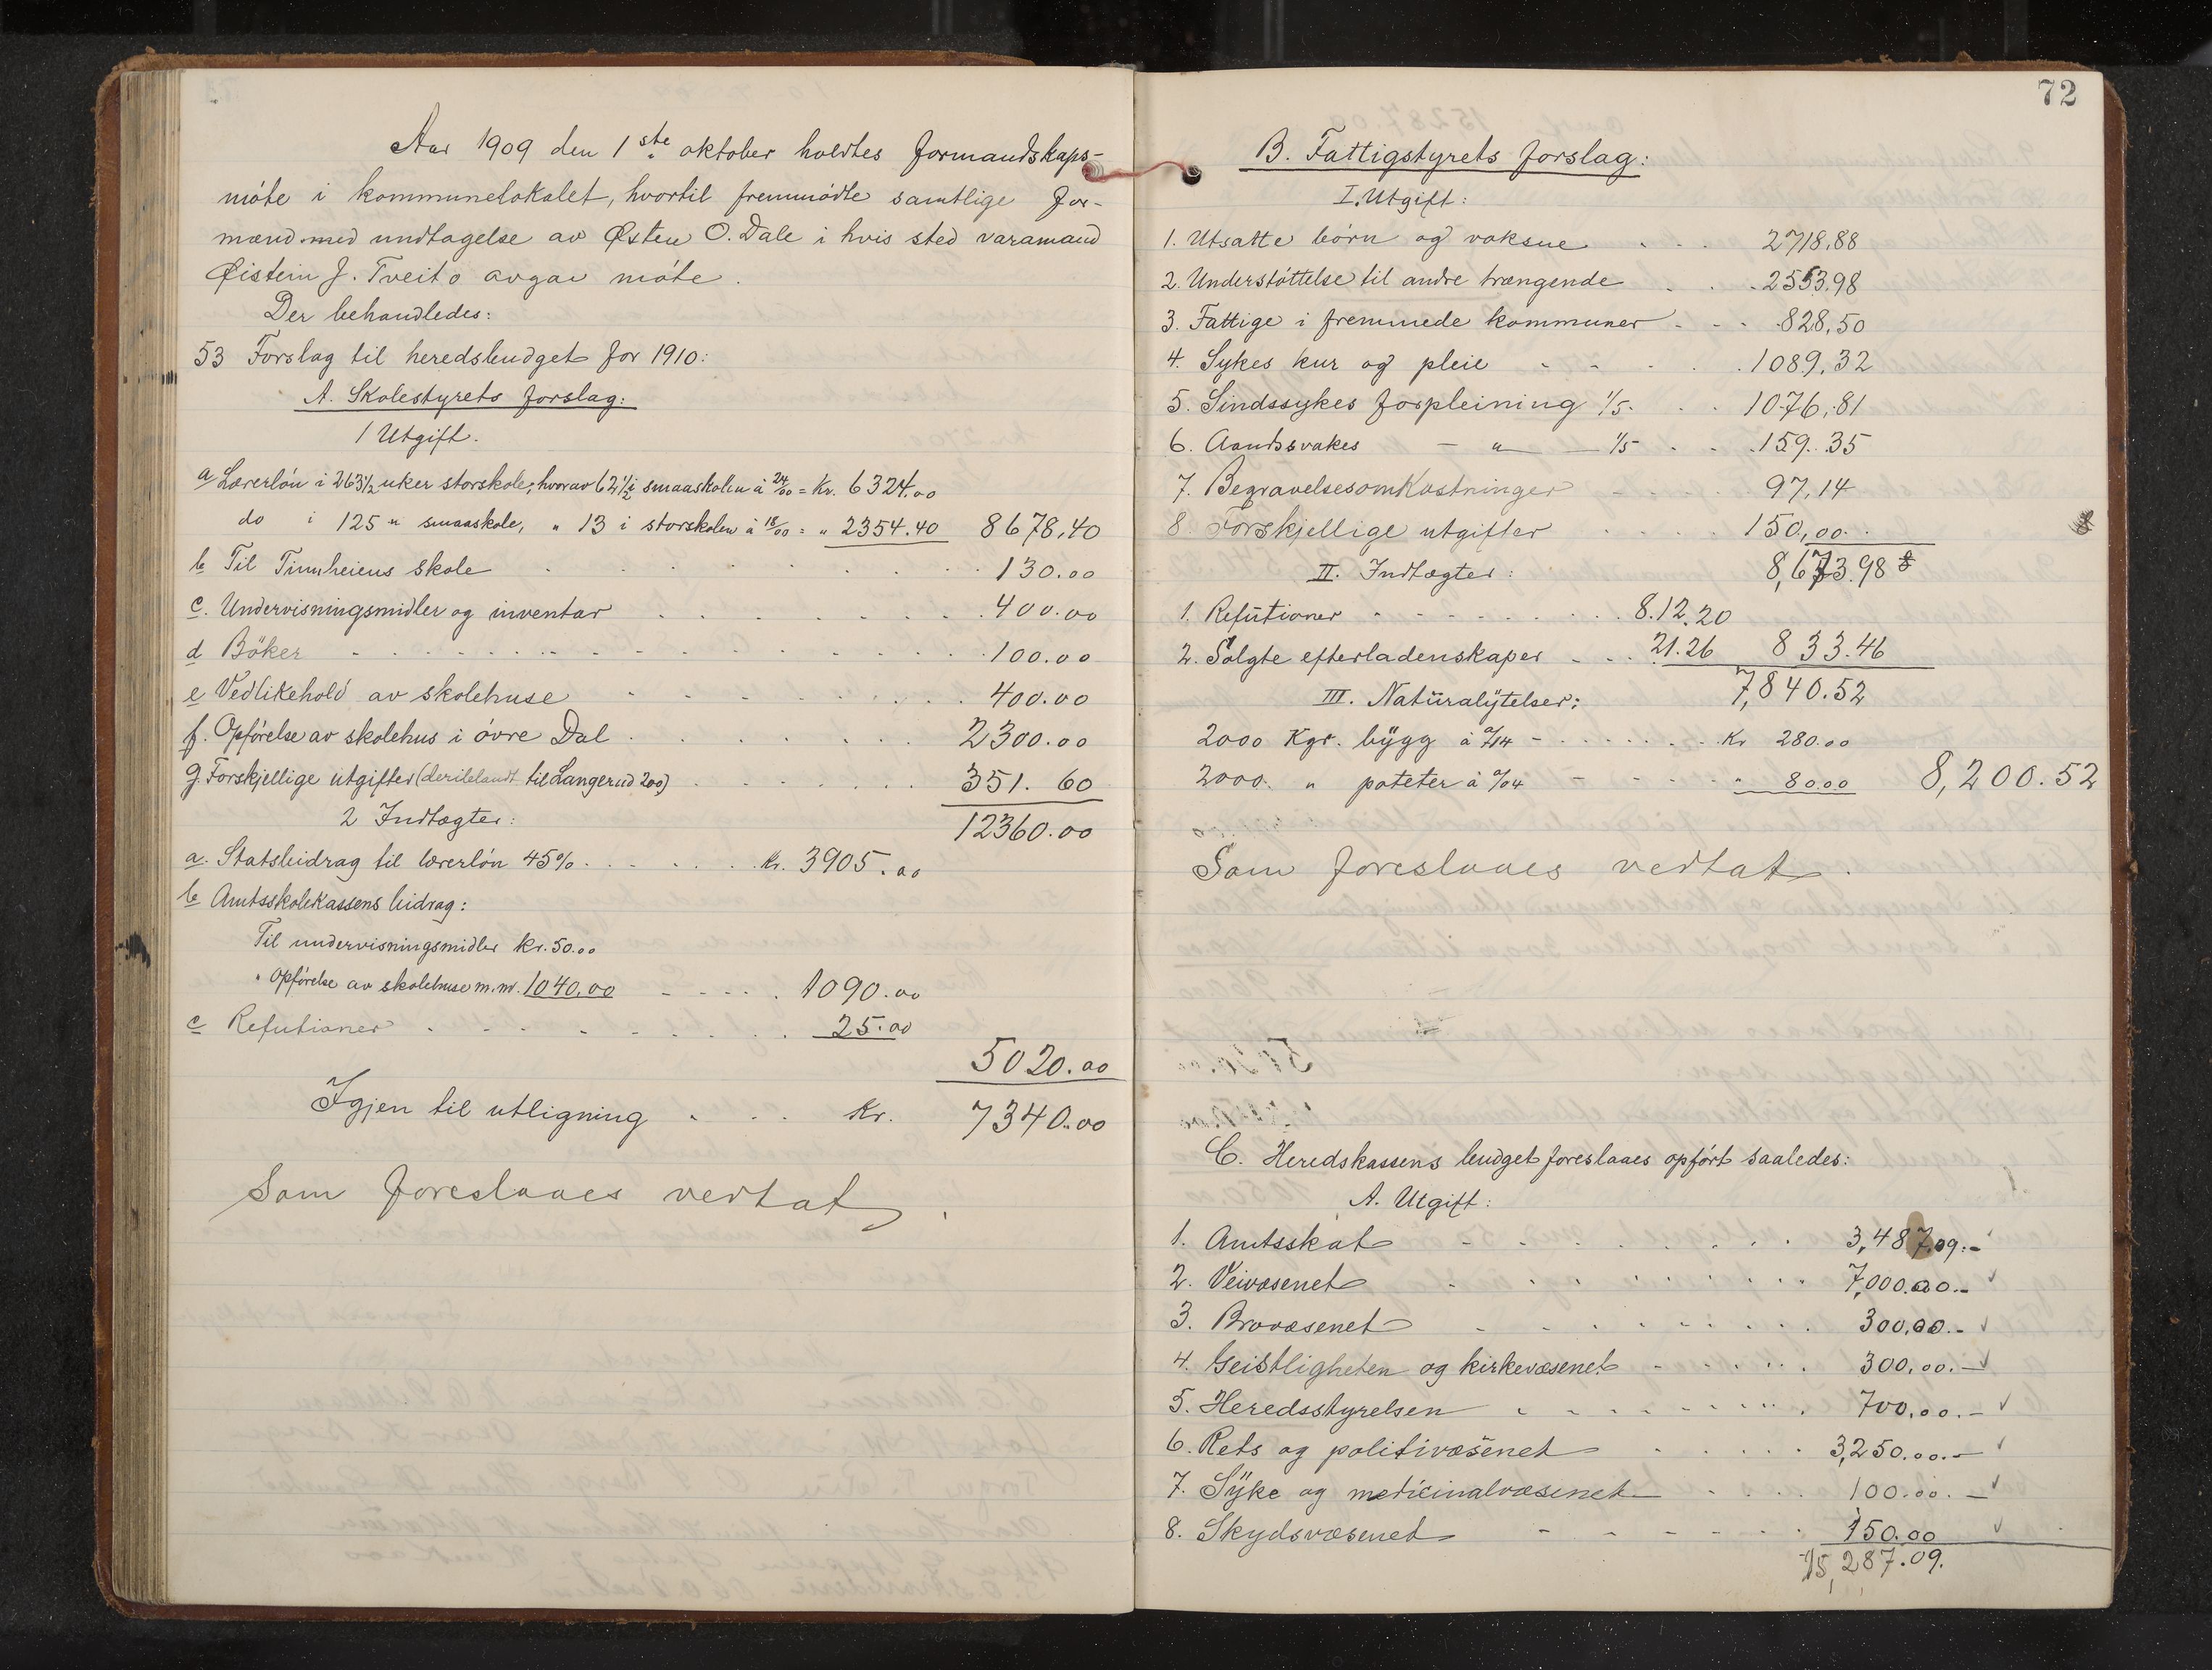 Aar 1909 den 1ste oktober holdtes formandskaps-
møte i kommunelokalet, hvortil fremmødte samtlige for-
mænd med undtagelse av Østen O. Dale i hvis sted varamand
Øistein J. Tveito avgav møte.
Der behandledes:
53 Forslag til heredsbudget for 1910:
A. Skolestyrets forslag:
1 Utgift.
a Lærerløn i 263½ uker storskole, hvorav 62½ i smaaskolen à 24/00 = Kr. 6324.00
do i 125 " smaaskole, " 13 i storskolen à 18/00 = " 2354.40 8678,40
b Til Tinnheiens skole 130.00
c. Undervisningsmidler og inventar 400.00
d Bøker 100.00
e Vedlikehold av skolehuse 400.00
f. Opførelse av skolehus i øvre Dal 2300.00
g. Forskjellige utgifter (deriblandt til Langerud 200) 351.60
2 Indtægter: 12360.00
a. Statsbidrag til lærerløn 45% Kr. 3905.00
b Amtsskolekassens bidrag:
Til undervisningsmidler kr. 50.00
" Opførelse av skolehuse m.m. 1040,00 1090.00
c Refutioner 25.00
5020.00
Igjen til utligning Kr. 7340.00
Som foreslaaes vedtat.
72
B. Fattigstyrets forslag:
I. Utgift:
1. Utsatte børn og voksne 2718,88
2. Understøttelse til andre trængende 2553.98
3. Fattige i fremmede kommuner 828,50
4. Sykes kur og pleie 1089,32
5. Sindssykes forpleining 1/5 1076,81
6. Aandssvakes — " — 1/5 159.35
7. Begravelsesomkostninger 97,14
8 Forskjellige utgifter 150,00
II. Indtægter: 8,673.98
1. Refutioner 8.12.20
2. Solgte efterladenskaper 21.26 833.46
III. Naturalytelser: 7,840.52
2000 Kgr. bygg à 0/14 Kr 280.00
2000 " poteter à 0/04 " 80.00 8,200.52
Som foreslaaes vedtat.
C. Heredskassens budget foreslaaes opført saaledes:
A. Utgift:
1. Amtsskat 3,487,09.-
2. Veivæsenet 7,000.00.-
3. Brovæsenet 300,00.-
4. Geistligheten og kirkevæsenet 300,00.-
5. Heredsstyrelsen 700,00.-
6. Rets og politivæsenet 3,250.00.-
7. Syke og medicinalvæsenet 100.00.-
8. Skydsvæsenet 150.00
15,287.09.